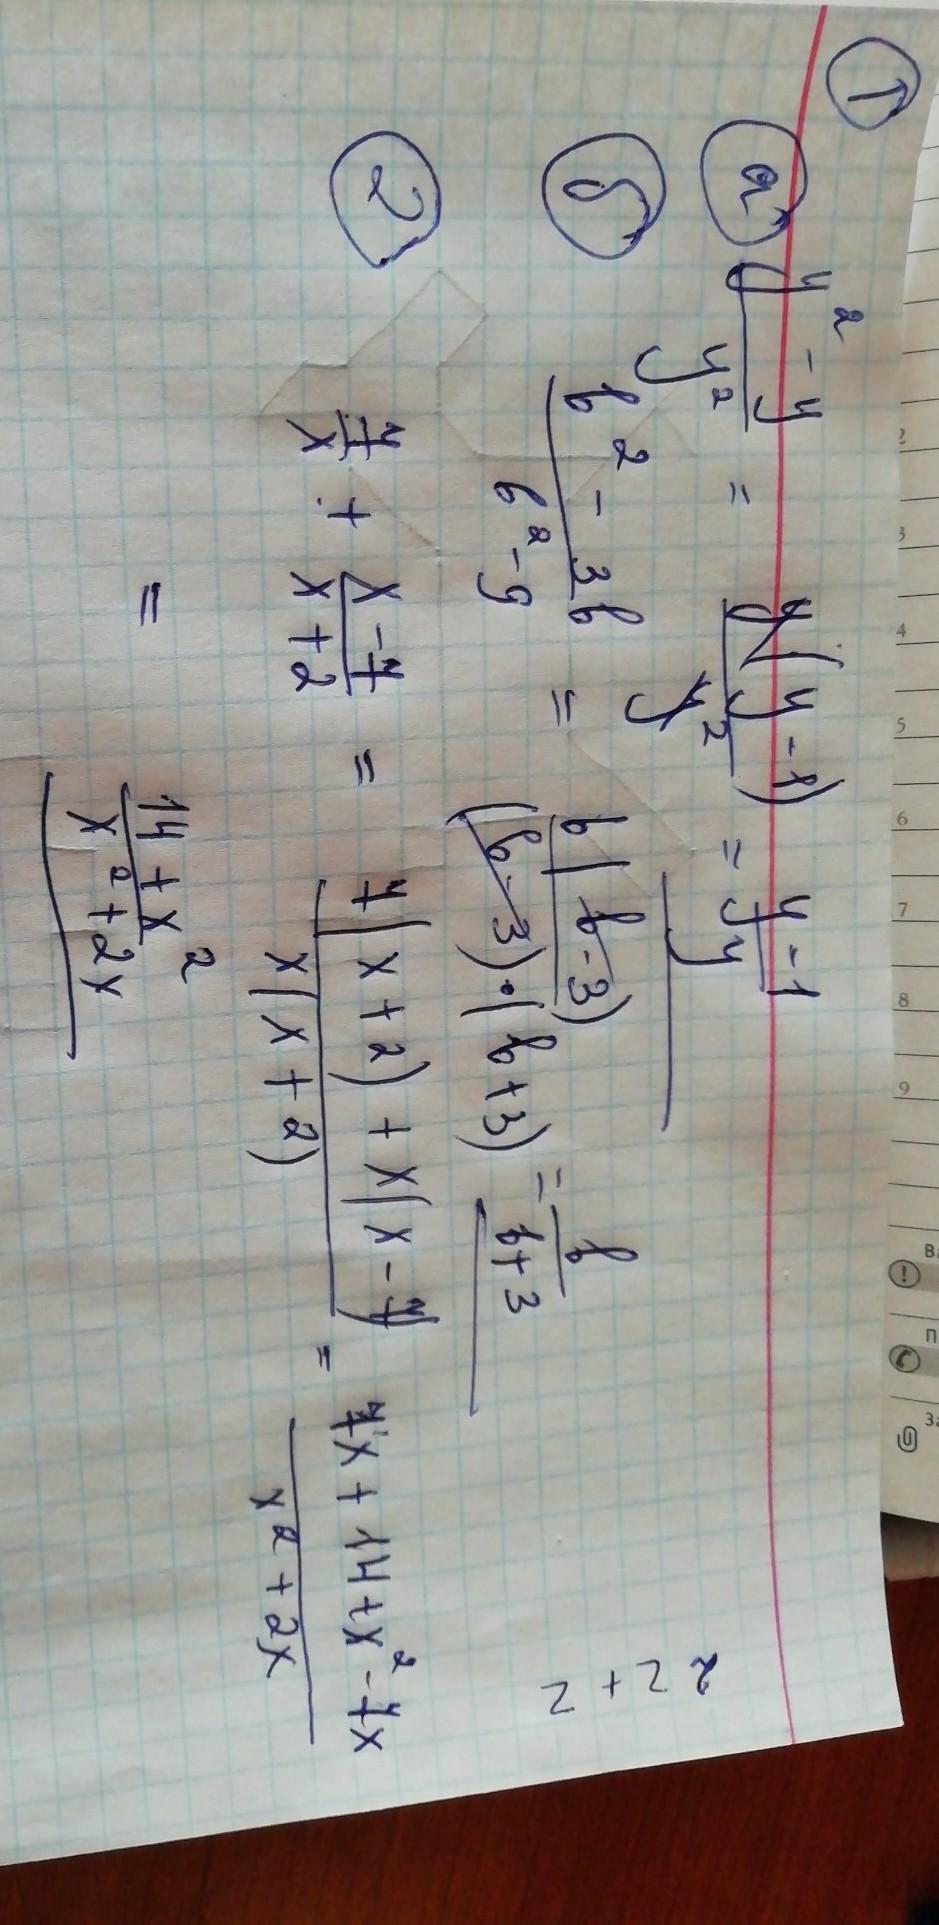 1
а) (y² - y)/y² = y(y - 1)/y² = (y - 1)/y
б) (b² - 3b)/(b² - 9) = b(b - 3)/((b - 3)·(b + 3)) = b/(b + 3)
2) 7/x + (x - 7)/(x + 2) = (7(x + 2) + x(x - 7))/(x(x + 2)) = (7x + 14 + x² - 7x)/(x² + 2x)
= (14 + x²)/(x² + 2x)
2
3
4
5
6
7
8
9